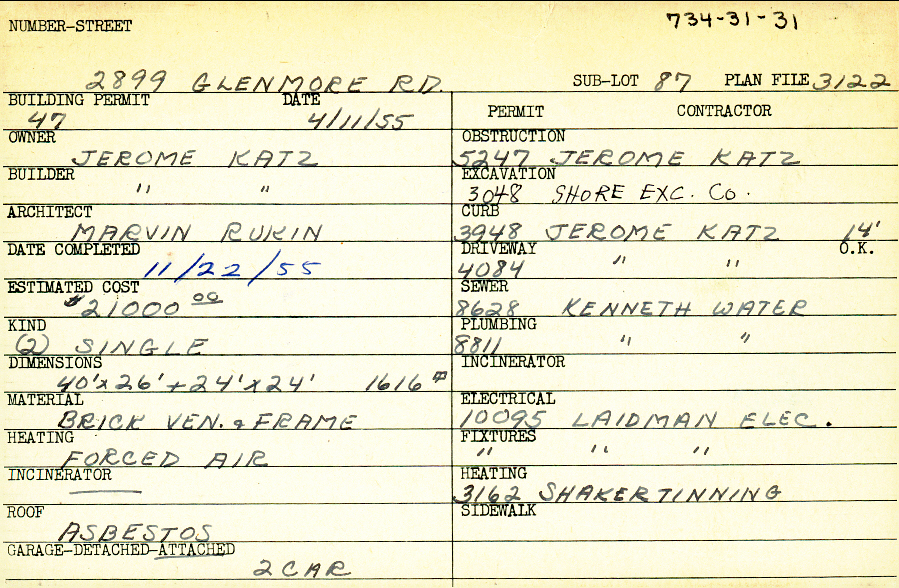 734-31-31
NUMBER-STREET
2899 GLENMORE RD. SUB-LOT 87 PLAN FILE 3122
BUILDING PERMIT DATE
47 4/11/55
OWNER
JEROME KATZ
BUILDER
" "
ARCHITECT
MARVIN RUKIN
DATE COMPLETED
11/22/55
ESTIMATED COST
$21000 00
KIND
(2) SINGLE
DIMENSIONS
40'x26'+24'x24' 1616 ф
MATERIAL
BRICK VEN. & FRAME
HEATING
FORCED AIR
INCINERATOR
ROOF
ASBESTOS
GARAGE-DETACHED-ATTACHED
2 CAR
PERMIT CONTRACTOR
OBSTRUCTION
5247 JEROME KATZ
EXCAVATION
3048 SHORE EXC. Co.
CURB
3948 JEROME KATZ 14'
DRIVEWAY O.K.
4084 " "
SEWER
8628 KENNETH WATER
PLUMBING
8811 " "
INCINERATOR
ELECTRICAL
10095 LAIDMAN ELEC.
FIXTURES
" " "
HEATING
3162 SHAKER TINNING
SIDEWALK